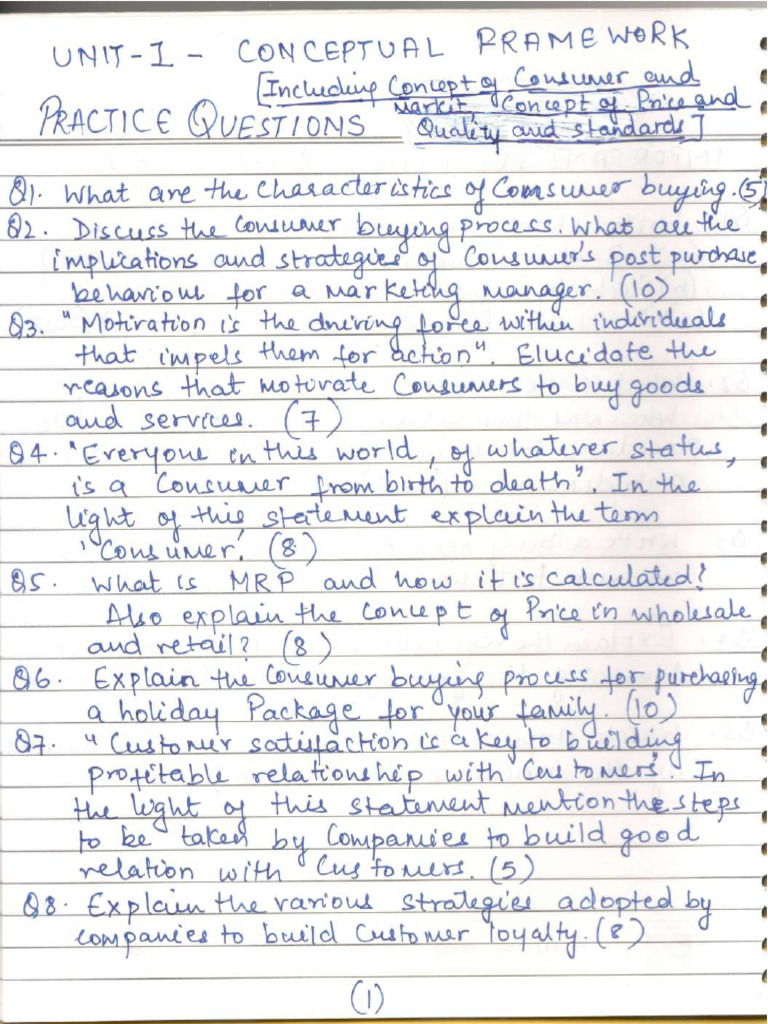 UNIT-1 - CONCEPTUAL FRAMEWORK
[Including Concept of Consumer and
Market, Concept of Price and
PRACTICE QUESTIONS Quality and standards]
Q1. What are the characteristics of Consumer buying. (5)
Q2. Discuss the Consumer buying process. What are the
implications and strategies of Consumer's post purchase
behaviour for a marketing manager. (10)
Q3. "Motivation is the driving force within individuals
that impels them for action". Elucidate the
reasons that motivate Consumers to buy goods
and services. (7)
Q4. "Everyone in this world, of whatever status,
is a Consumer from birth to death". In the
light of this statement explain the term
'Consumer'. (8)
Q5. What is MRP and how it is calculated?
Also explain the concept of Price in wholesale
and retail? (8)
Q6. Explain the Consumer buying process for purchasing
a holiday Package for your family. (10)
Q7. "Customer satisfaction is a key to building
profitable relationship with Customers". In
the light of this statement mention the steps
to be taken by Companies to build good
relation with Customers. (5)
Q8. Explain the various strategies adopted by
companies to build Customer loyalty. (8)
(1)